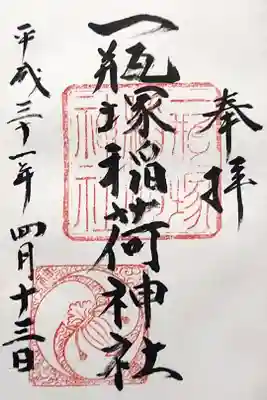 奉拝
一瓶塚稲荷神社
平成三十一年 四月十三日